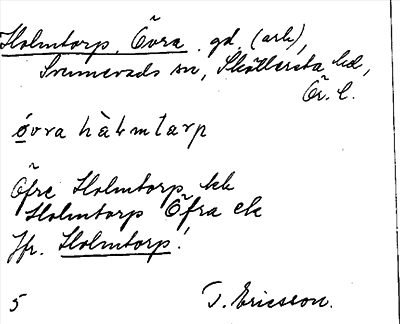 Holmtorp, Övra gd. (arb),
Svennevads sn, Sköllersta hd,
Ör. l.
òvra hàlmtarp
Öfre Holmtorp hk
Holmtorp Öfra ek
Jfr. Holmtorp!
5 T. Ericsson.